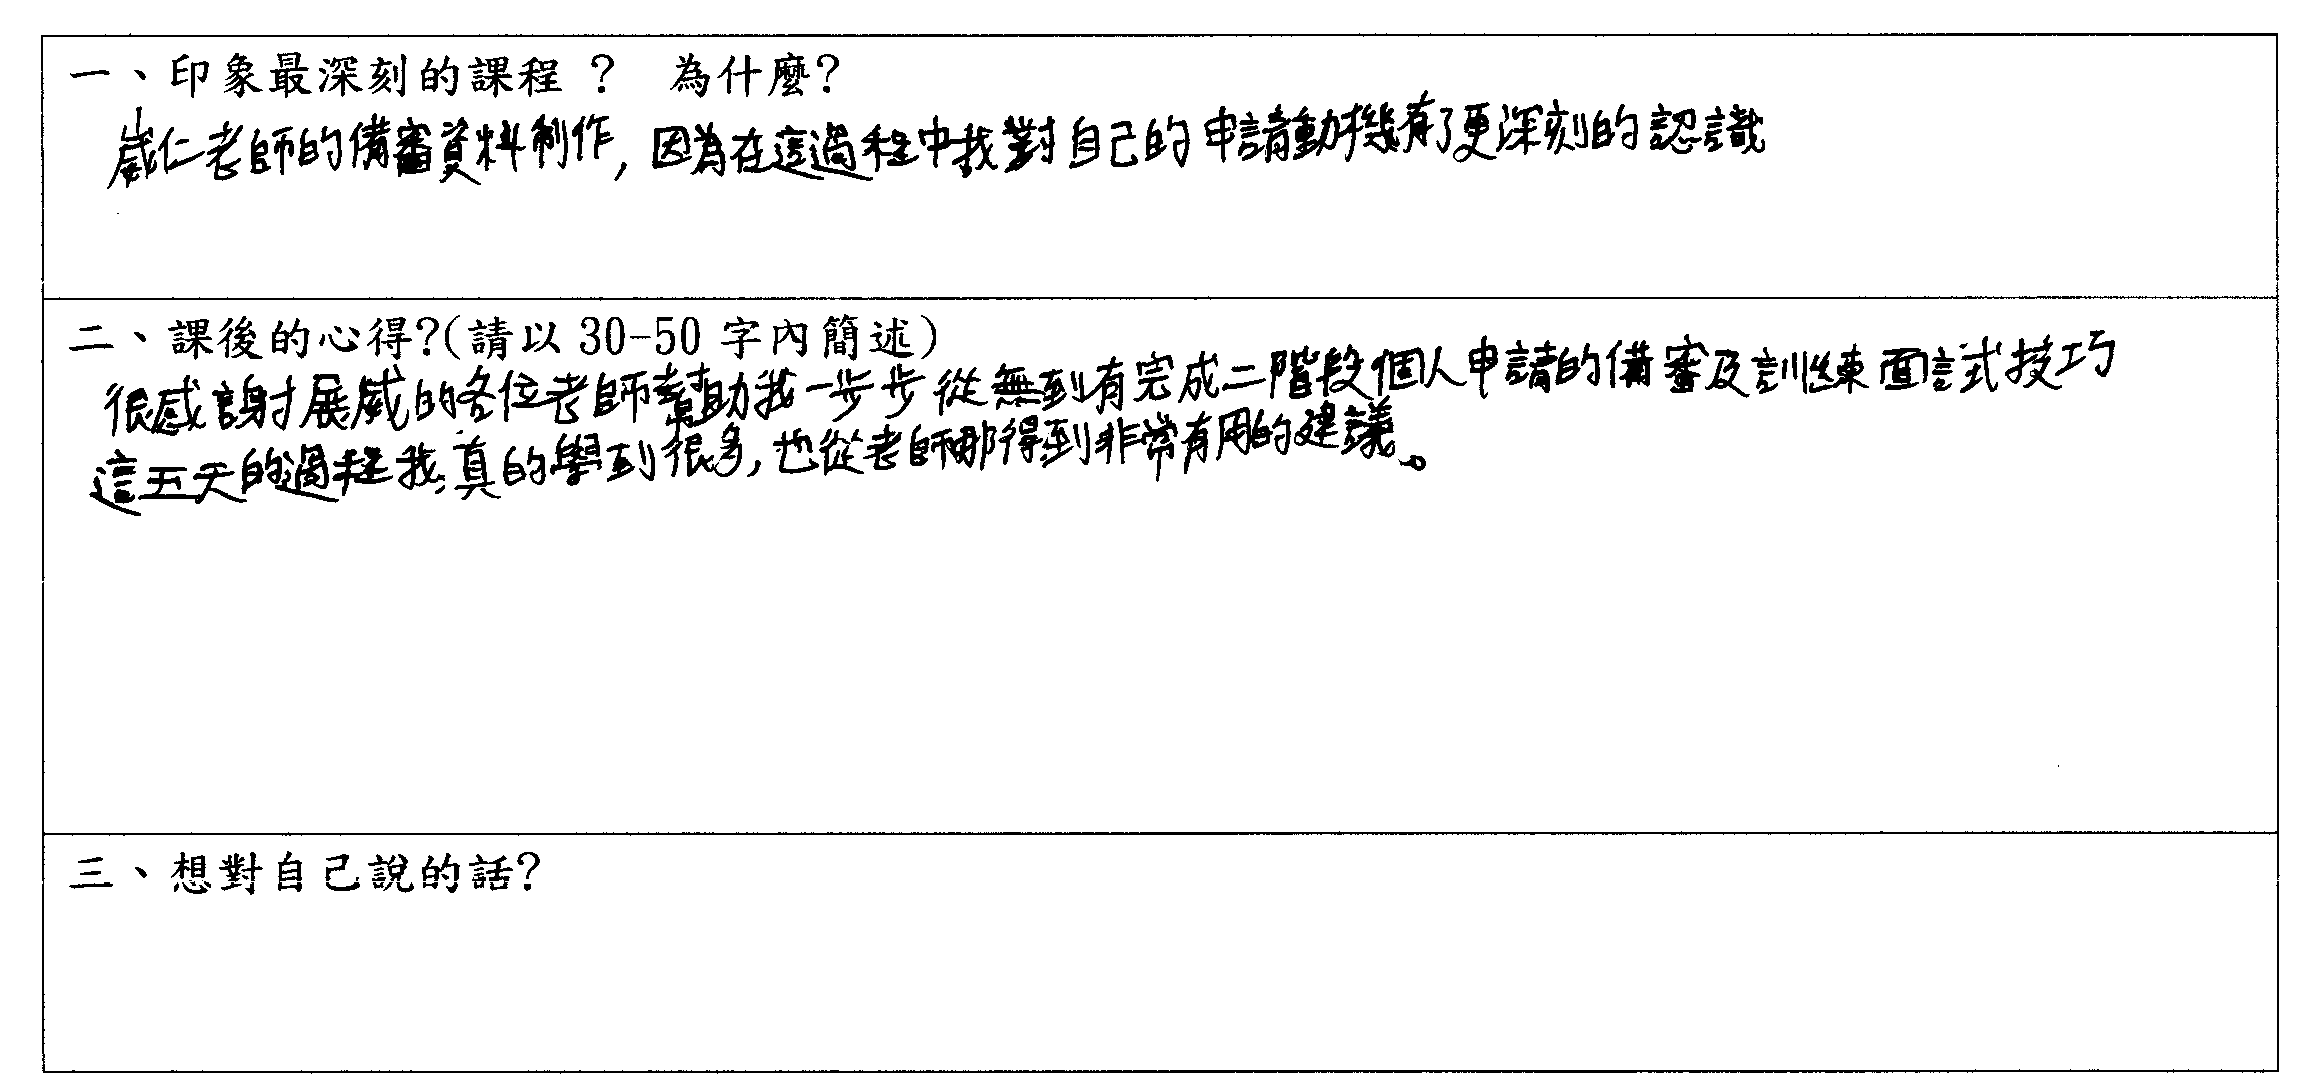 一、印象最深刻的課程 ? 為什麼?
崴仁老師的備審資料制作, 因為在這過程中我對自己的申請動機有了更深刻的認識
二、課後的心得?(請以 30-50 字內簡述)
很感謝展威的各位老師幫助我一步步從無到有完成二階段個人申請的備審及訓練面試技巧
這五天的過程我真的學到很多, 也從老師那得到非常有用的建議。
三、想對自己說的話?